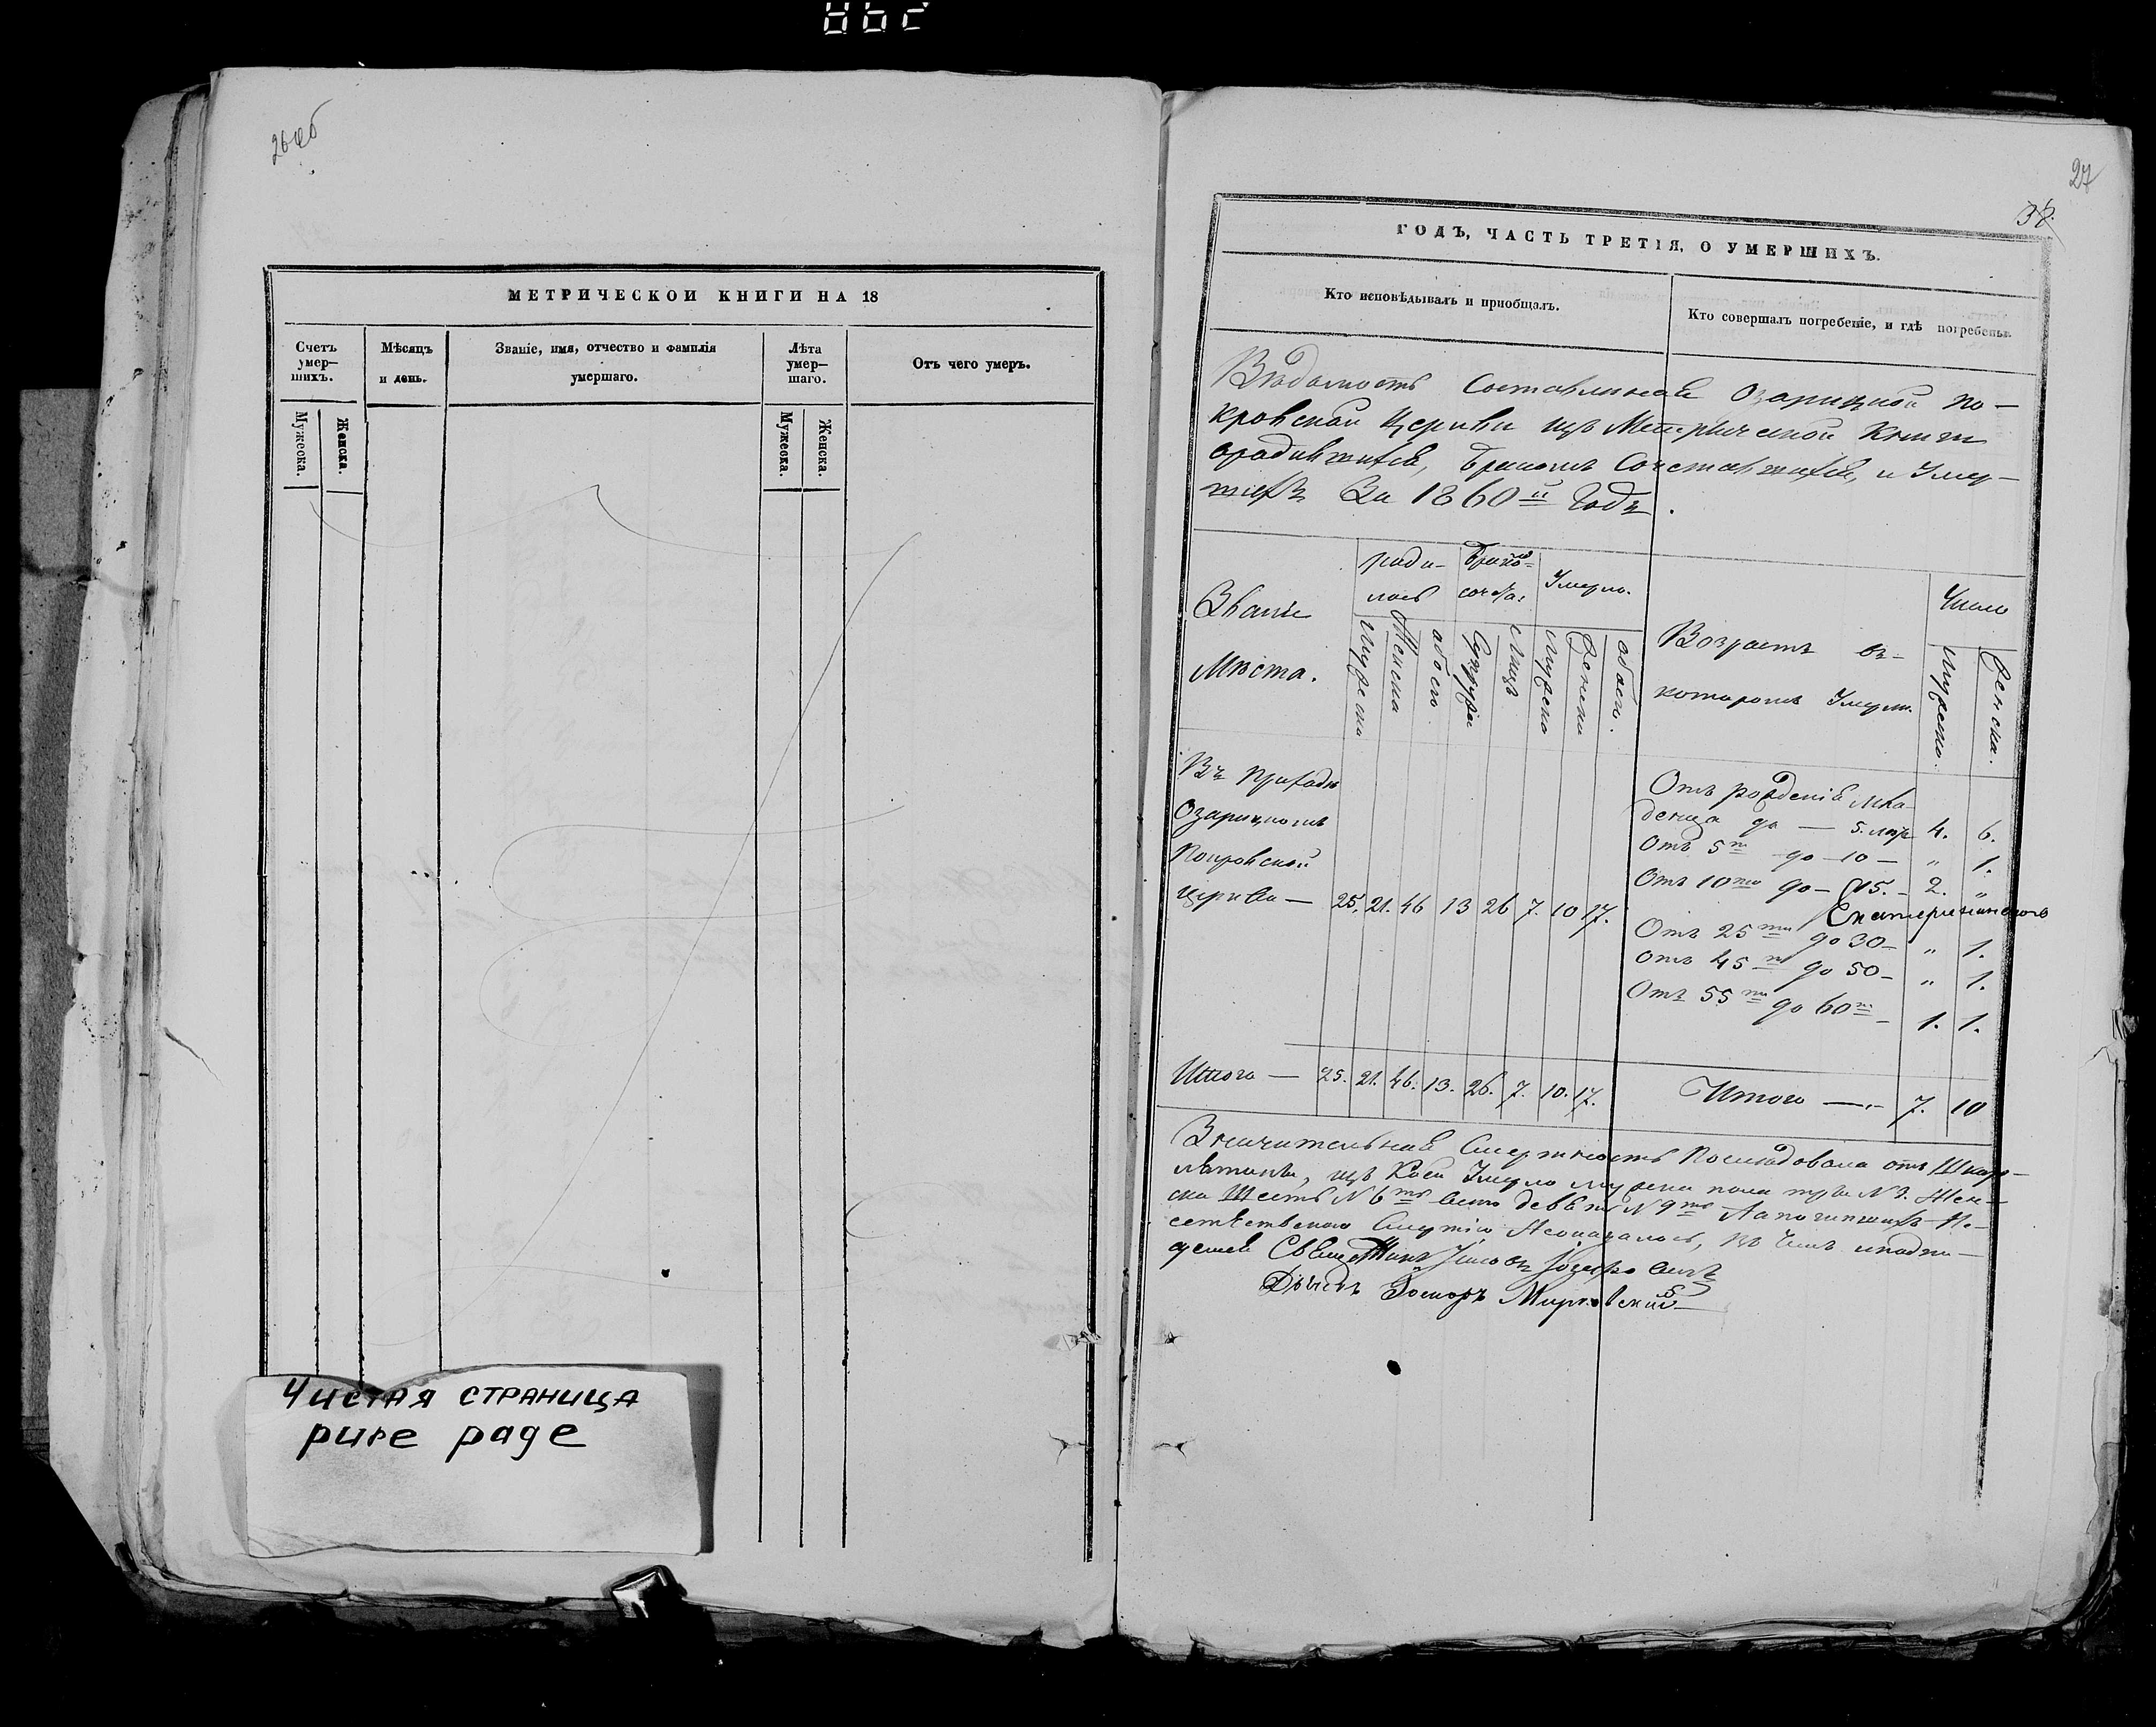 26 об
МЕТРИЧЕСКОЙ КНИГИ НА 18
Счетъ умер-
шихъ.
Мужеска.
Женска.
Мѣсяцъ
и день.
Званіе, имя, отчество и фамилія
умершаго.
Лѣта
умер-
шаго.
Мужеска.
Женска.
Отъ чего умеръ.
Чистая страница
pure page
27
38.
ГОДЪ, ЧАСТЬ ТРЕТІЯ, О УМЕРШИХЪ.
Кто исповѣдывалъ и пріобщалъ.
Кто совершалъ погребеніе, и гдѣ погребены.
Вѣдомость Составленная Озарицкой По-
кровской Церкви изъ Метрической Книги
о родившихся, Бракомъ Сочетавшихся, и Умер-
шихъ За 1860й Годъ.
Званіе
Мѣста.
роди-
лось
Мужеска
Женска
обоего
Умерло.
Мужеска
Женски
обоего.
Возрастъ въ
которомъ Умерли.
Число
Мужеска.
Женска.
Въ Приходѣ
Озарицкомъ
Покровской
Церкви — 25. 21. 46 13 26 7. 10 17.
Отъ рожденія Мла-
денца до — 5. лѣтъ 4. 6.
Отъ 5ти до — 10 — „ 1.
Отъ 10ти до — 15. — 2. „
Отъ 25ти до 30 — „ 1.
Отъ 45ти до 50 — „ 1.
Отъ 55ти до 60ти — 1. 1.
Итого — 25. 21. 46. 13. 26. 7. 10. 17.
Итого — 7. 10
Значительная Смертность Послѣдовала отъ Шкар-
латины, изъ коей Умерло мужска пола три № 3. Жен-
ска Шесть № 6ть Всего девять № 9ть
Смертію Неоказалось, Въ Чемъ и подпи-